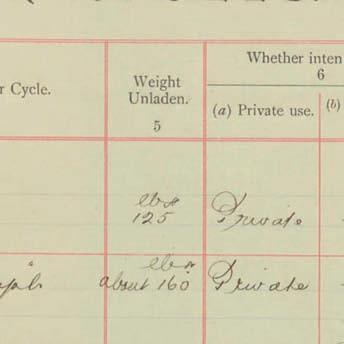 Whether inten
6
r Cycle.
Weight
Unladen.
5
(a) Private use.
(b)
lbs
125
Private
lbs
about 160
Private